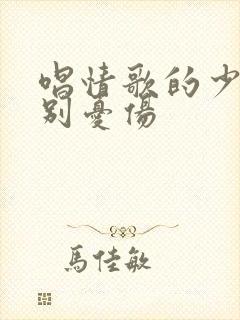 唱情歌的少
别憂傷
馬佳敏